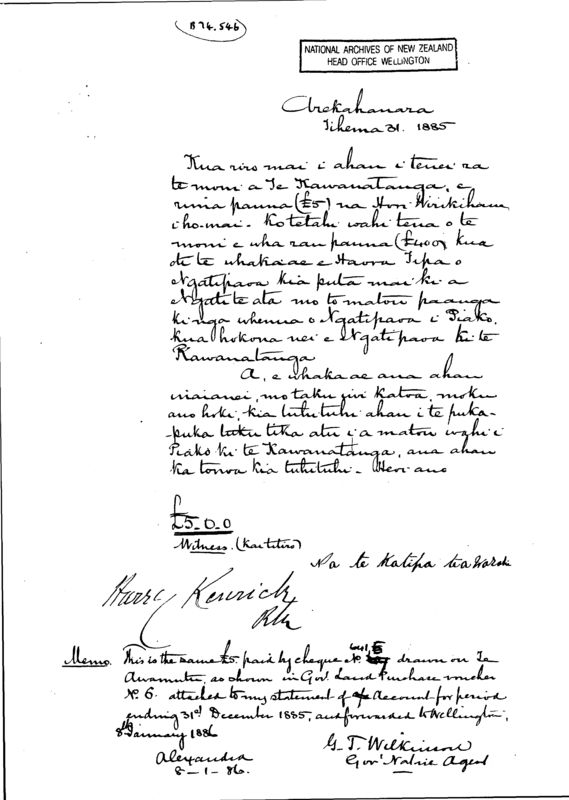 B 74.546
NATIONAL ARCHIVES OF NEW ZEALAND
HEAD OFFICE WELLINGTON
Arekahanara
Tihema 31. 1885
Kua riro mai i ahau i tenei ra
te moni a Te Kawanatanga, e
rima pauna (£5) na Hori Wirikihana
i ho-mai. Ko tetahi wahi tena o te
moni e wha rau pauna (£400) kua
oti te whakaae e Haora Tipa o
Ngatipaoa kia puta mai ki a
Ngatiteata mo to matou paanga
ki nga whenua o Ngatipaoa i Piako,
kua hokona nei e Ngatipaoa ki te
Kawanatanga
A, e whakaae ana ahau
inaianei, mo taku iwi katoa, moku
ano hoki, kia tuhituhi ahau i te puka-
-puka tuku tika atu i a matou wahi i
Piako ki te Kawanatanga, ana ahau
ka tonoa kia tuhituhi. Heoi ano
£
£5-0-0
Witness. (Kai titiro)
Na te Katipa tea
Harry Kenrick
RM
Memo. This is the same £5 paid by cheque No drawn on Te
Awamutu, as shown in Govt Land Purchase voucher
No 6. attached to my statement of Account for period
ending 31st December 1885, and forwarded to Wellington,
8th January 1886
Alexandra
8-1-86.
G. T. Wilkinson
Govt Native Agent